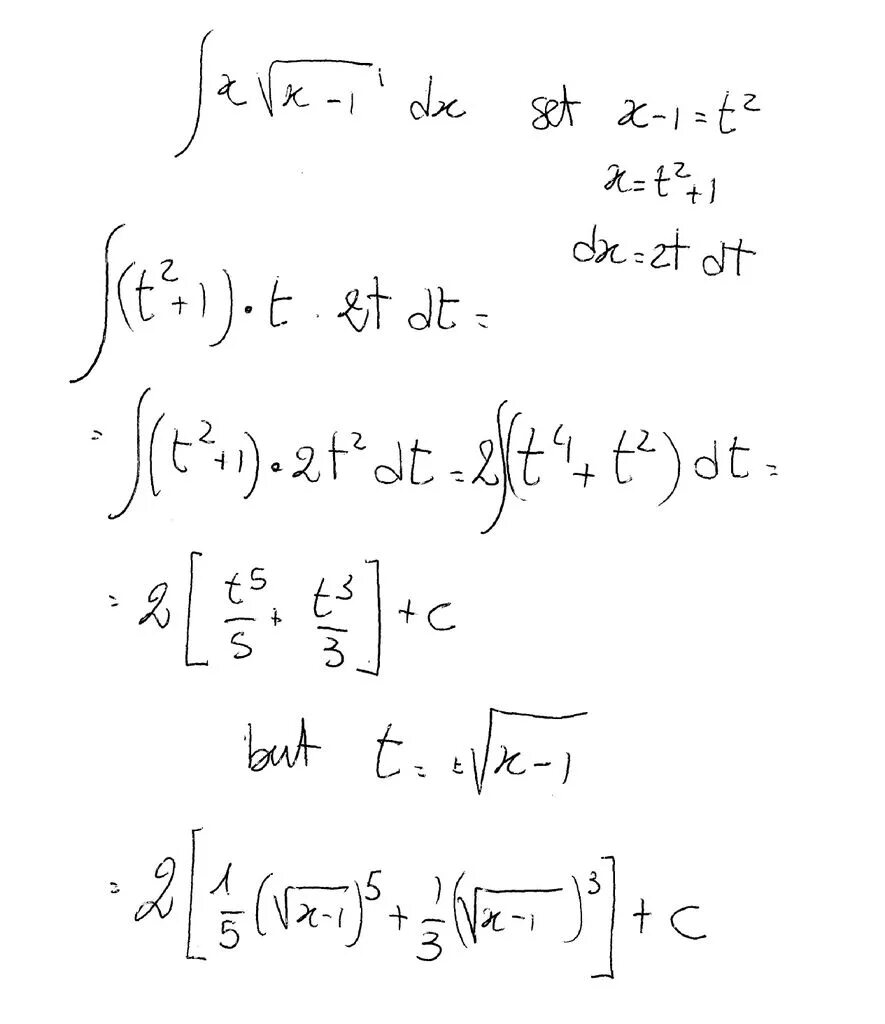 ∫ x √(x-1) dx set x-1 = t²
x = t²+1
dx = 2t dt
∫(t²+1) · t · 2t dt =
= ∫(t²+1) · 2t² dt = 2∫(t⁴ + t²) dt =
= 2 [ t⁵/5 + t³/3 ] + c
but t = ±√(x-1)
= 2 [ 1/5 (√(x-1))⁵ + 1/3 (√(x-1))³ ] + c